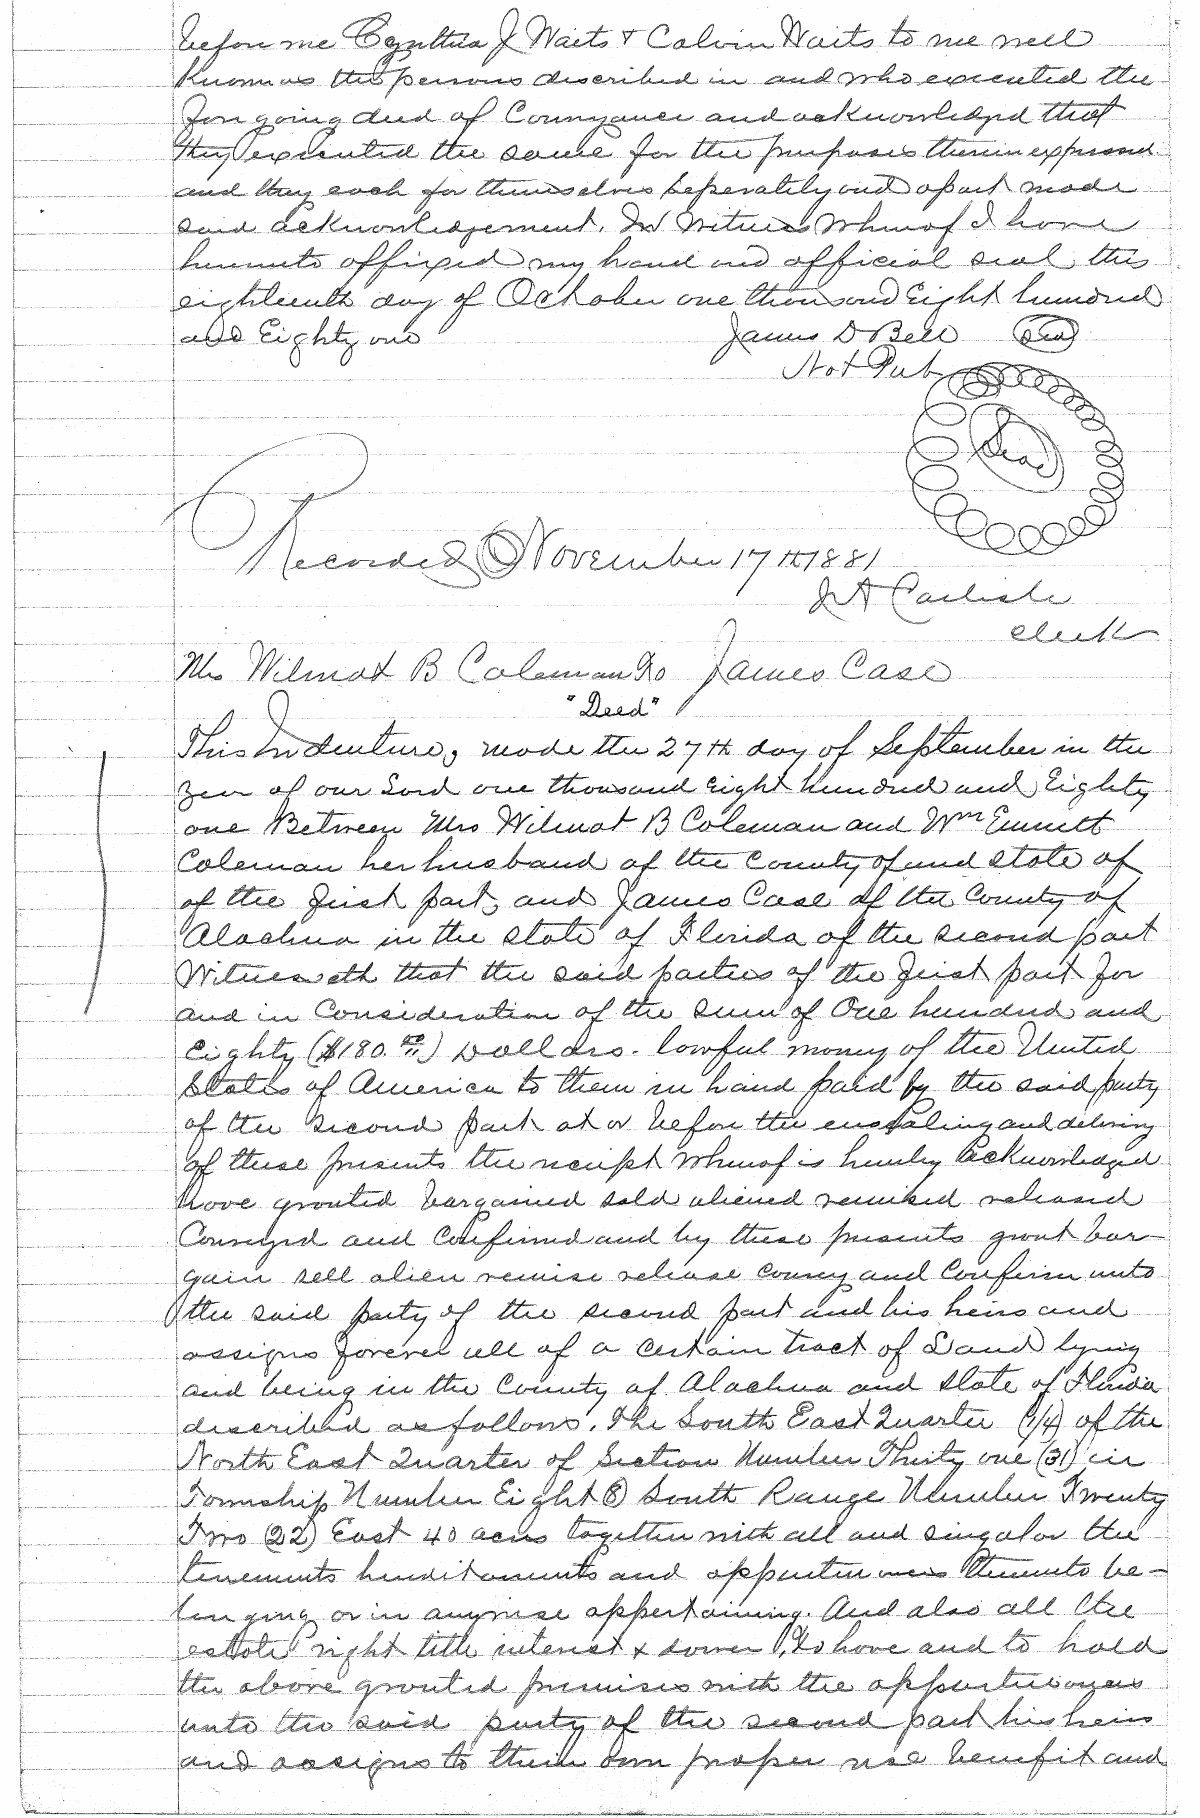 before me Cynthia J Waits & Calvin Waits to me well
known as the persons described in and who executed the
foregoing deed of Conveyance and acknowledged that
they executed the same for the purposes therein expressed
and they each for themselves seperately and apart made
said acknowledgement. In Witness Whereof I have
hereunto affixed my hand and official seal this
eighteenth day of October one thousand Eight hundred
and Eighty one James D Bell Seal
Not Pub
Seal
Recorded November 17th 1881
J A Carlisle
clerk
Mrs Wilmot B Coleman to James Case
"Deed"
This Indenture, made the 27th day of September in the
year of our Lord one thousand eight hundred and Eighty
one Between Mrs Wilmot B Coleman and Wm Emmett
Coleman her husband of the County of and state of
of the first part, and James Case of the County of
Alachua in the state of Florida of the second part
Witnesseth that the said parties of the first part for
and in Consideration of the sum of One hundred and
eighty ($180.00) Dollars. lawful money of the United
States of America to them in hand paid by the said party
of the second part at or before the ensealing and delivery
of these presents the receipt whereof is hereby Acknowledged
have granted bargained sold aliened remised released
Conveyed and Confirmed and by these presents grant bar-
gain sell alien remise release convey and Confirm unto
the said party of the second part and his heirs and
assigns forever all of a certain tract of Land lying
and being in the County of Alachua and State of Florida
described as follows. The South East Quarter (1/4) of the
North East Quarter of Section Number Thirty one (31) in
Township Number Eight (8) South Range Number Twenty
Two (22) East 40 acres together with all and singular the
tenements hereditaments and appurtenances thereunto be-
longing or in anywise appertaining. And also all the
estate right title interest & dower, To have and to hold
the above granted premises with the appurtenances
unto the said party of the second part his heirs
and assigns to their own proper use benefit and